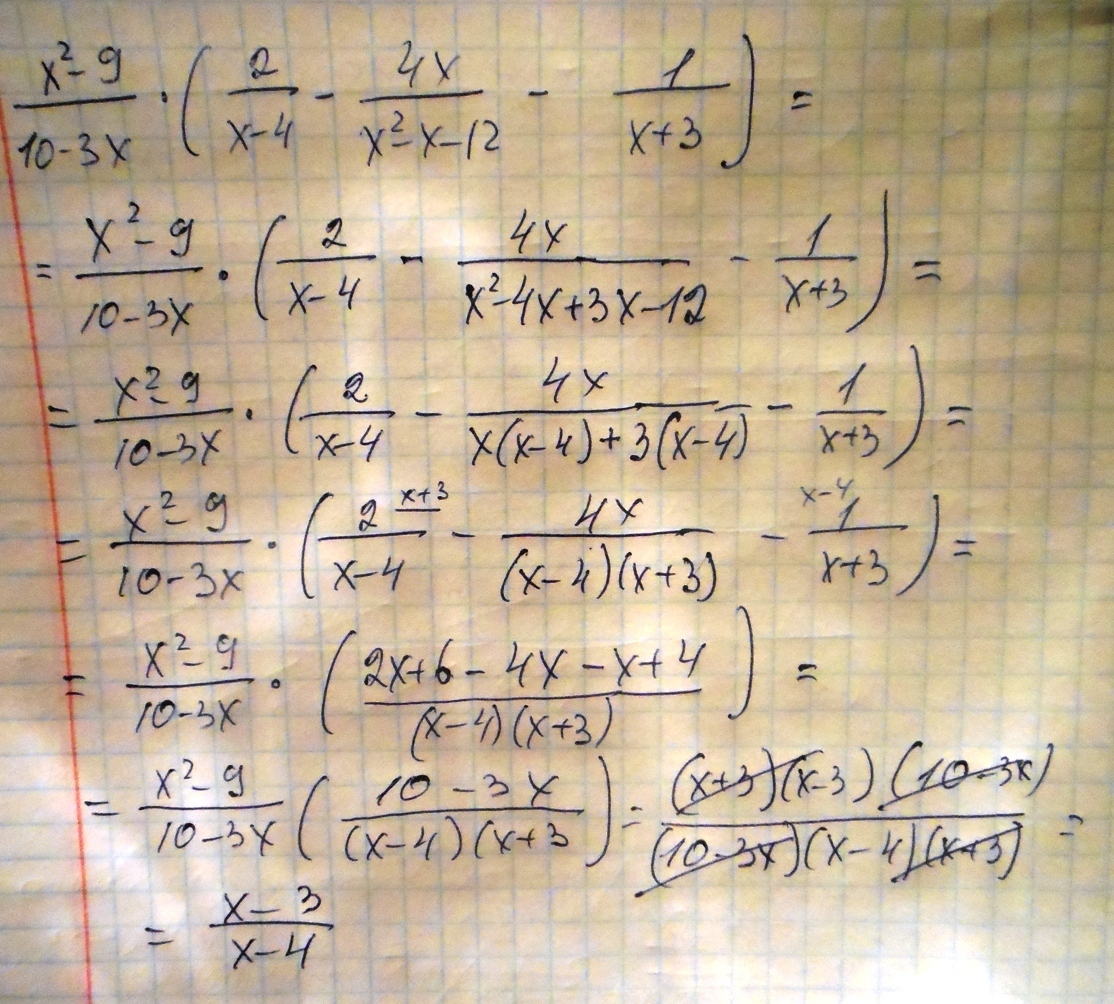 \frac{x^2-9}{10-3x} \cdot \left( \frac{2}{x-4} - \frac{4x}{x^2-x-12} - \frac{1}{x+3} \right) =
= \frac{x^2-9}{10-3x} \cdot \left( \frac{2}{x-4} - \frac{4x}{x^2-4x+3x-12} - \frac{1}{x+3} \right) =
= \frac{x^2-9}{10-3x} \cdot \left( \frac{2}{x-4} - \frac{4x}{x(x-4)+3(x-4)} - \frac{1}{x+3} \right) =
= \frac{x^2-9}{10-3x} \cdot \left( \frac{2^{x+3}}{x-4} - \frac{4x}{(x-4)(x+3)} - \frac{^{x-4}1}{x+3} \right) =
= \frac{x^2-9}{10-3x} \cdot \left( \frac{2x+6-4x-x+4}{(x-4)(x+3)} \right) =
= \frac{x^2-9}{10-3x} \left( \frac{10-3x}{(x-4)(x+3} \right) = \frac{(x+3)(x-3)(10-3x)}{(10-3x)(x-4)(x+3)} =
= \frac{x-3}{x-4}